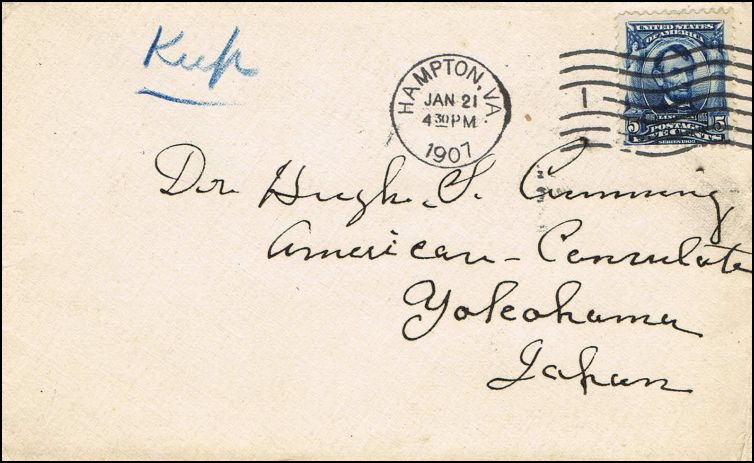 Keep
UNITED STATES
OF AMERICA
HAMPTON, VA.
JAN 21
4 30 PM
1907
5 POSTAGE 5
CENTS
SERIES 1902
Dr. Hugh S. Cumming
American Consulate
Yokohama
Japan